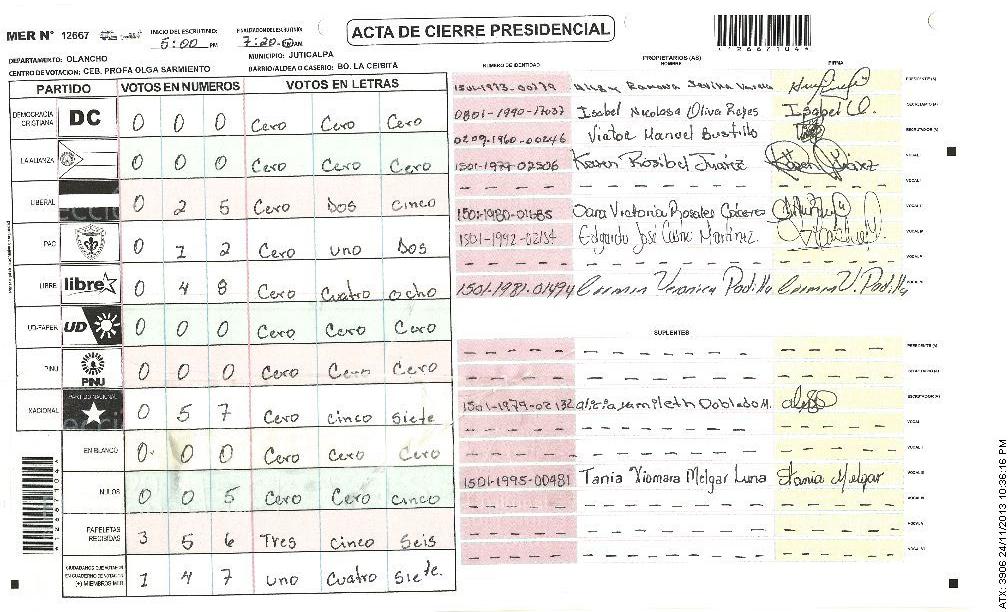 MER N° 12667
INICIO DEL ESCRUTINIO:
5:00 PM
FINALIZACION DEL ESCRUTINIO:
7:20
ACTA DE CIERRE PRESIDENCIAL
DEPARTAMENTO: OLANCHO
MUNICIPIO: JUTICALPA
CENTRO DE VOTACION: CEB. PROFA OLGA SARMIENTO
BARRIO/ALDEA O CASERIO: BO. LA CEIBITA
PARTIDO VOTOS EN NUMEROS VOTOS EN LETRAS
DEMOCRACIA CRISTIANA DC 0 0 0 Cero Cero Cero
LA ALIANZA 0 0 0 Cero Cero Cero
LIBERAL 0 2 5 Cero Dos cinco
PAC 0 1 2 Cero uno Dos
LIBRE libre 0 4 8 Cero Cuatro ocho
UD-FAPER UD 0 0 0 Cero Cero Cero
PINU PINU 0 0 0 Cero Cero Cero
NACIONAL 0 5 7 Cero cinco Siete
EN BLANCO 0 0 0 Cero Cero Cero
NULOS 0 0 5 Cero Cero cinco
PAPELETAS RECIBIDAS 3 5 6 Tres cinco Seis
CIUDADANOS QUE VOTARON EN CUADERNO DE VOTACION (+) MIEMBROS MER 1 4 7 uno Cuatro Siete.
PROPIETARIOS (AS)
NUMERO DE IDENTIDAD NOMBRE FIRMA
1501-1973-00779 Ramona PRESIDENTE (A)
0801-1990-17037 Isabel Nicolasa Oliva Reyes Isabel O. SECRETARIO (A)
0209-1960-00246 Victor Manuel Bustillo ESCRUTADOR (A)
1501-1977-02506 Karen Rosibel Juárez Karen Juárez VOCAL I
VOCAL II
1501-1980-01685 Sara Victoria Rosales Cáceres
1501-1992-02134 Edgardo José Martinez
1501-1981-01494 Carmen Veronica Padilla Carmen V. Padilla
SUPLENTES
PRESIDENTE (A)
SECRETARIO (A)
1501-1979-02132 alicia yamileth Doblado M. ESCRUTADOR (A)
VOCAL I
VOCAL II
1501-1995-00481 Tania Xiomara Melgar Luna Tania Melgar VOCAL III
VOCAL IV
VOCAL V
VOCAL VI
ATX: 3906 24/11/2013 10:36:16 PM